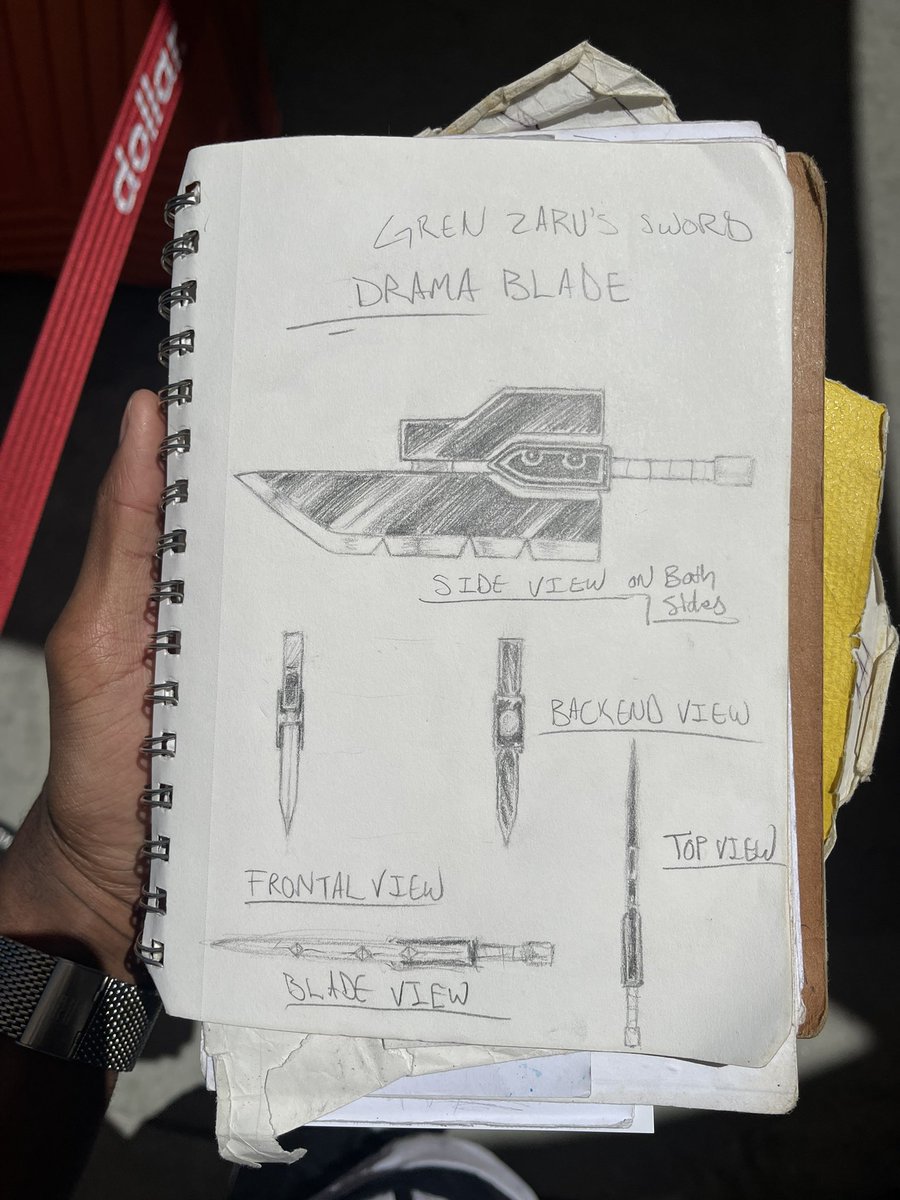 dollar
GREN ZARU'S SWORD
DRAMA BLADE
SIDE VIEW ON Both
Sides
BACKEND VIEW
TOP VIEW
FRONTAL VIEW
BLADE VIEW